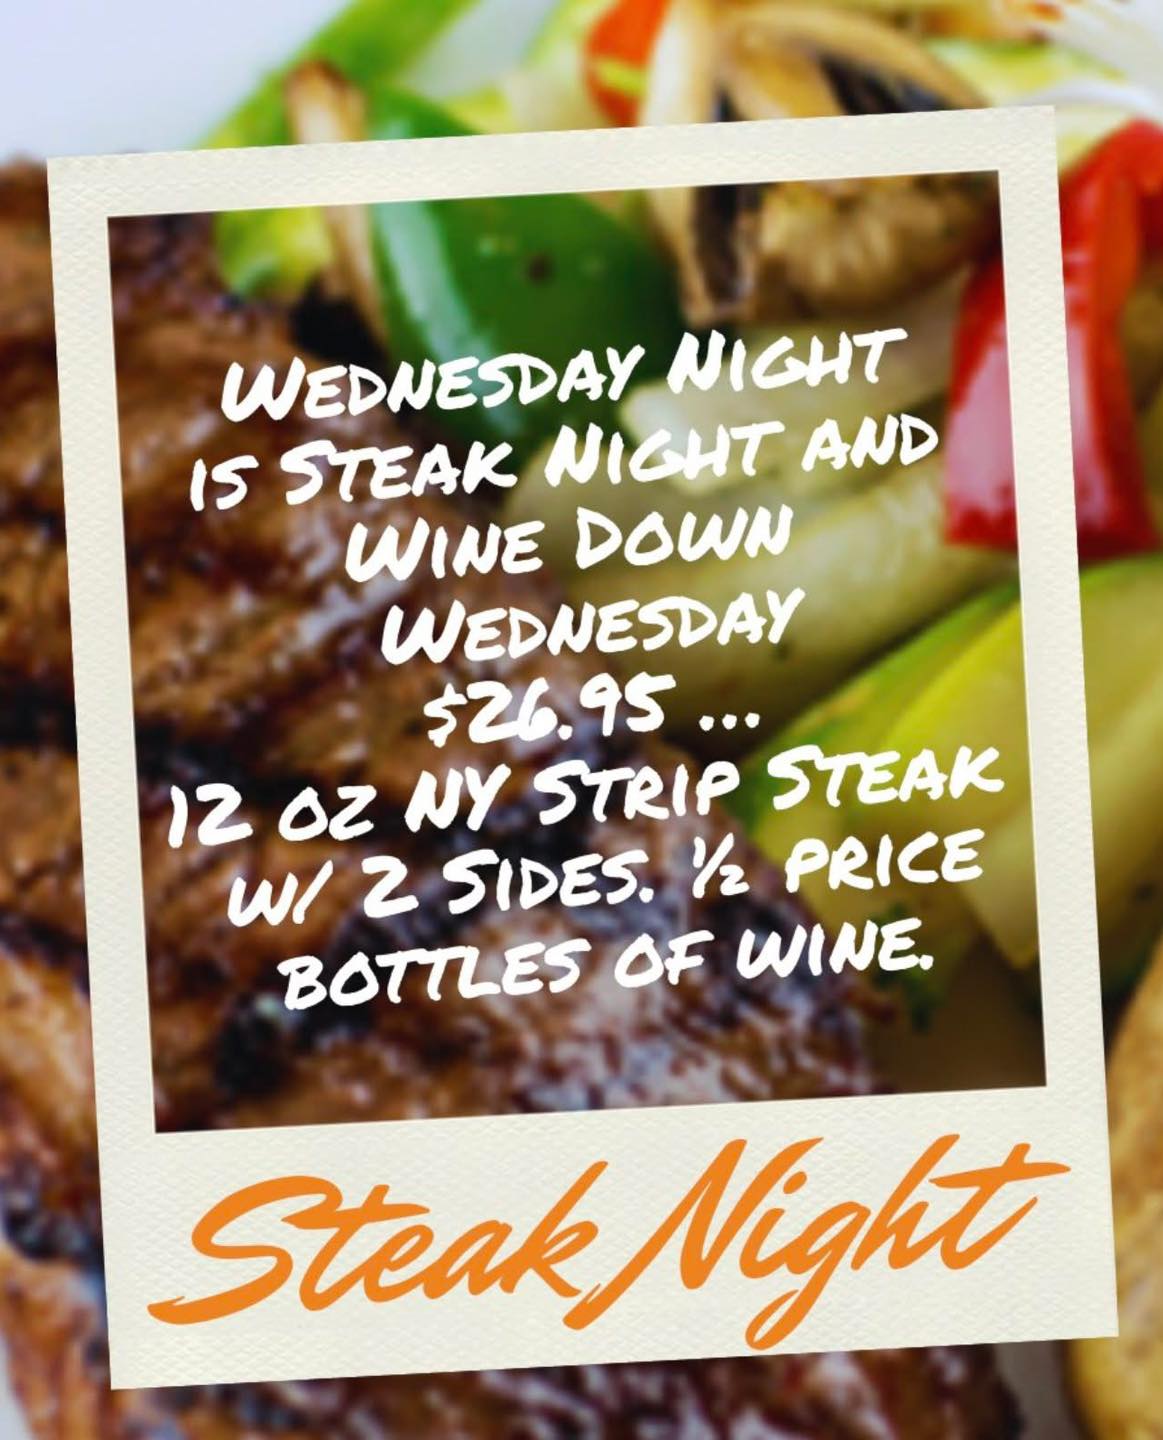 Wednesday Night
is Steak Night and
Wine Down
Wednesday
$26.95 ...
12 oz NY Strip Steak
w/ 2 Sides. ½ price
bottles of wine.
Steak Night